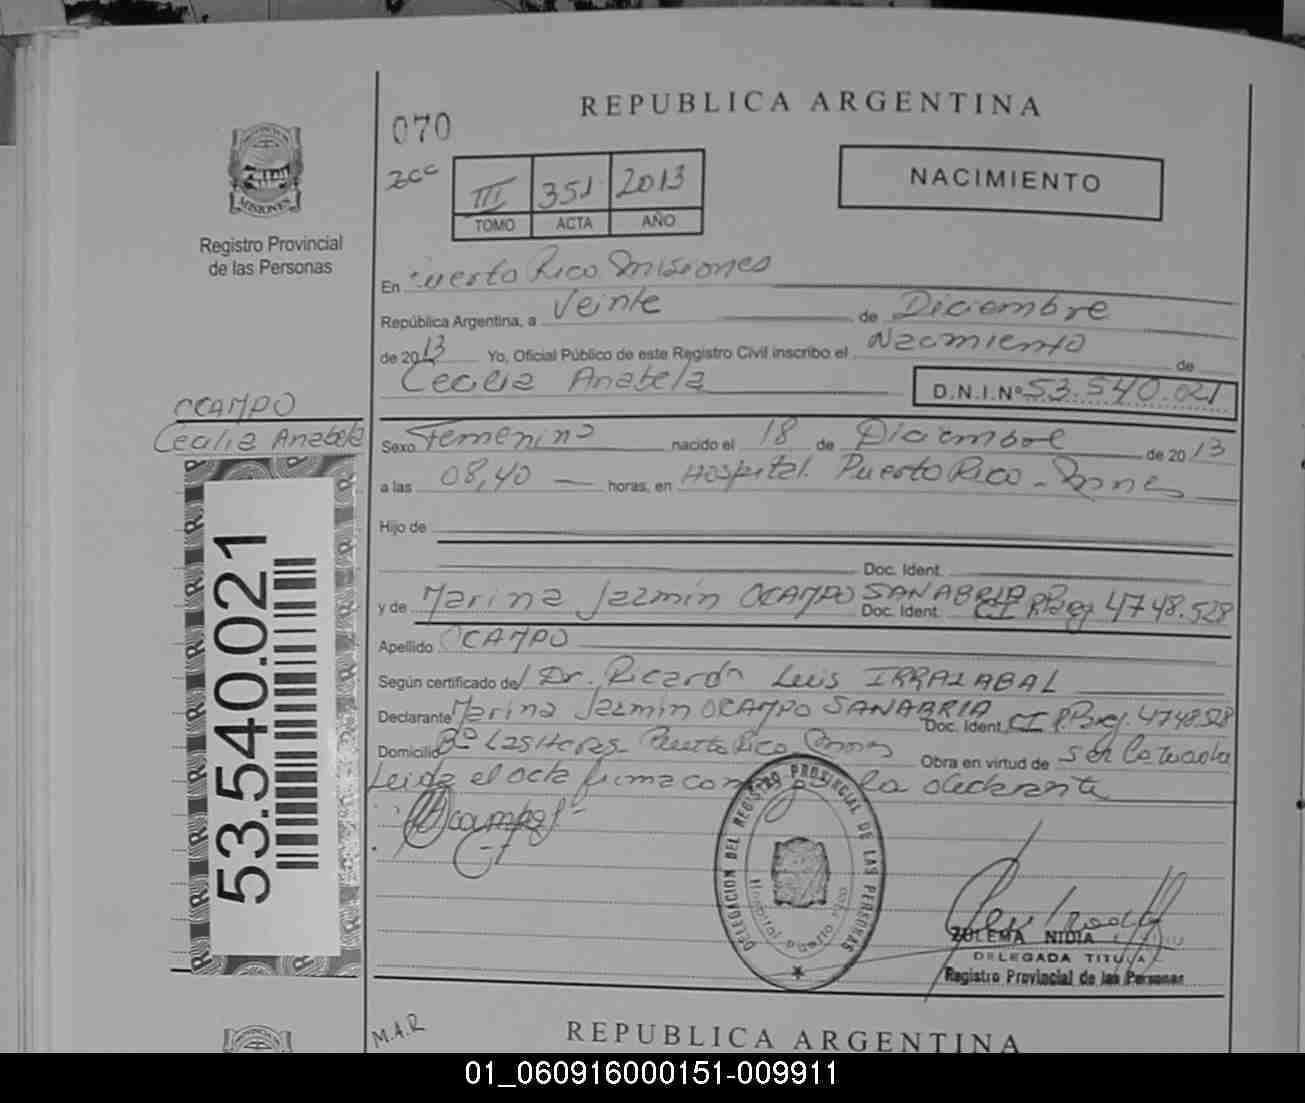 REPUBLICA ARGENTINA
070
III 351 2013
TOMO ACTA AÑO
NACIMIENTO
MISIONES
Registro Provincial
de las Personas
En Puerto Rico Misiones
República Argentina, a Veinte de Diciembre
de 2013 Yo, Oficial Público de este Registro Civil inscribo el Nacimiento de
Cecilia Anabela D.N.I.Nº 53.540.021
OCAMPO
Cecilia Anabela
Sexo Femenino nacido el 18 de Diciembre de 2013
a las 08,40 horas, en Hospital Puerto Rico - Mnes
Hijo de
Doc. Ident.
y de Marina Jazmín OCAMPO SANABRIA Doc. Ident. CI RParg 4748.528
Apellido OCAMPO
Según certificado del Dr. Ricardo Luis IRRAZABAL
Declarante Marina Jazmin OCAMPO SANABRIA Doc. Ident. CI R. Parg. 4748528
Domicilio Bº Las Heras Puerto Rico Obra en virtud de ser la madre
Leida el acta firma con la declarante
Ocampo
53.540.021
DELEGACION DEL REGISTRO PROVINCIAL DE LAS PERSONAS
Hospital Puerto Rico
ZULEMA NIDIA
DELEGADA TITULAR
Registro Provincial de las Personas
M.A.R
REPUBLICA ARGENTINA
01_060916000151-009911